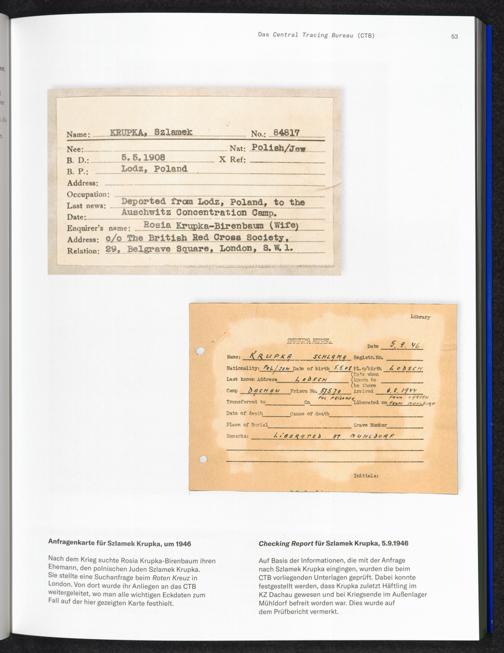 Das Central Tracing Bureau (CTB)
53
Name: KRUPKA, Szlamek No.: 84817
Nee: Nat: Polish/Jew
B. D.: 5.5.1908 X Ref:
B. P.: Lodz, Poland
Address:
Occupation:
Last news: Deported from Lodz, Poland, to the
Date: Auschwitz Concentration Camp.
Enquirer's name: Rosia Krupka-Birenbaum (Wife)
Address: c/o The British Red Cross Society,
Relation: 29, Belgrave Square, London, S.W.1.
Library
Date 5.9.46
Name: KRUPKA SCHLAMA Registr.No.
Nationality: Pol/Jew Date of birth Pl.o/birth LODSCH
Last known Address LODSCH
Date when
known to
be there
Camp DACHAU Prison No. Arrived
Transferred to on Liberated on
Date of death Cause of death
Place of Burial Grave Number
Remarks: LIBERATED AT MUHLDORF
Initials:
Anfragenkarte für Szlamek Krupka, um 1946
Nach dem Krieg suchte Rosia Krupka-Birenbaum ihren
Ehemann, den polnischen Juden Szlamek Krupka.
Sie stellte eine Suchanfrage beim Roten Kreuz in
London. Von dort wurde ihr Anliegen an das CTB
weitergeleitet, wo man alle wichtigen Eckdaten zum
Fall auf der hier gezeigten Karte festhielt.
Checking Report für Szlamek Krupka, 5.9.1946
Auf Basis der Informationen, die mit der Anfrage
nach Szlamek Krupka eingingen, wurden die beim
CTB vorliegenden Unterlagen geprüft. Dabei konnte
festgestellt werden, dass Krupka zuletzt Häftling im
KZ Dachau gewesen und bei Kriegsende im Außenlager
Mühldorf befreit worden war. Dies wurde auf
dem Prüfbericht vermerkt.